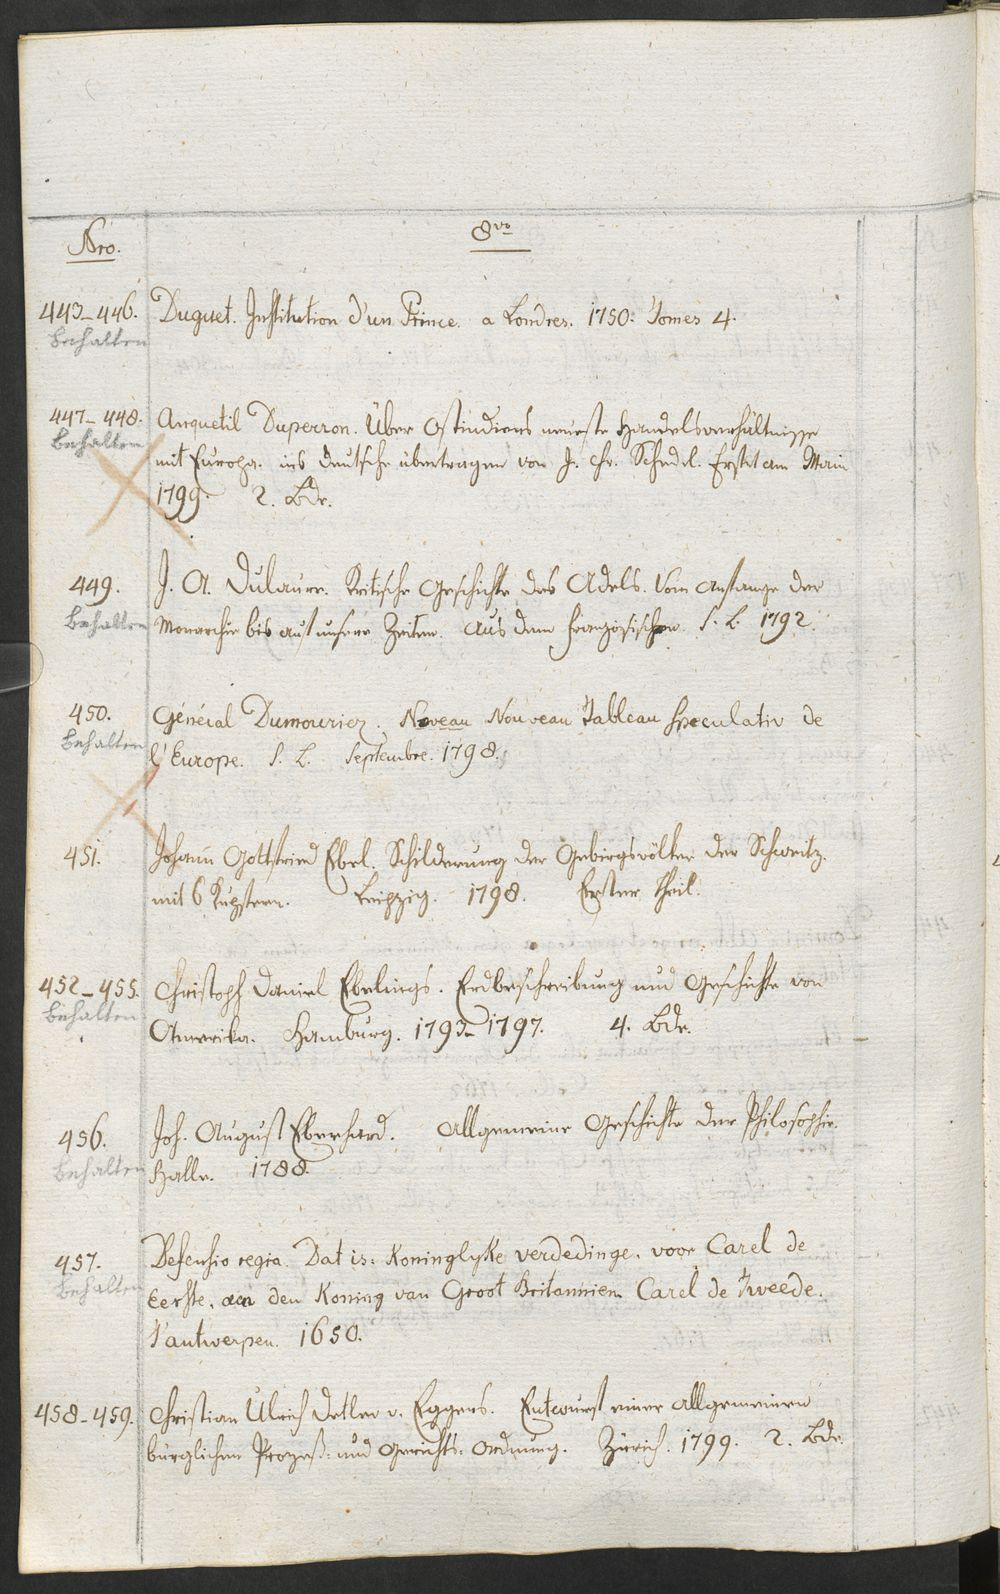 Nro.
8vo
443_446. Duguet. Institution d'un Prince. a Londres. 1750. Tomes 4.
behalten
447_448. Anquetil Duperron. Über Ostindiens neueste Handelsverhältnisse
behalten
mit Europa. ins deutsche übertragen von J. Chr. Schedel. Frft am Main
1799. 2. Bde.
449. J. A. Dulaure. Kritische Geschichte des Adels. Vom Anfange der
behalten
Monarchie bis auf unsere Zeiten. Aus dem französischen S. L. 1792.
450. Général Dumouriez. Noveau Nouveau Tableau speculativ de
behalten
l'Europe. S. L. Septembre. 1798.
451. Johann Gottfried Ebel. Schilderung der Gebirgsvölker der Schweitz.
mit 6 Kupfern. Leipzig. 1798. Erster Theil.
452_455. Christoph Daniel Ebelings. Erdbeschreibung und Geschichte von
behalten
Amerika. Hamburg. 1793_1797. 4. Bde.
456. Joh. August Eberhard. Allgemeine Geschichte der Philosophie.
behalten
Halle. 1788.
457. Defensio regia. Dat is: Koninglyke verdedinge. voor Carel de
behalten
Eerste, aen den Koning van Groot Britannien Carel de Tweede.
t'antwerpen. 1650.
458_459. Christian Ulrich Detlev v. Eggers. Entwurf einer allgemeinen
bürglichen Prozeß= und Gerichts= Ordnung. Zürich. 1799. 2. Bde.